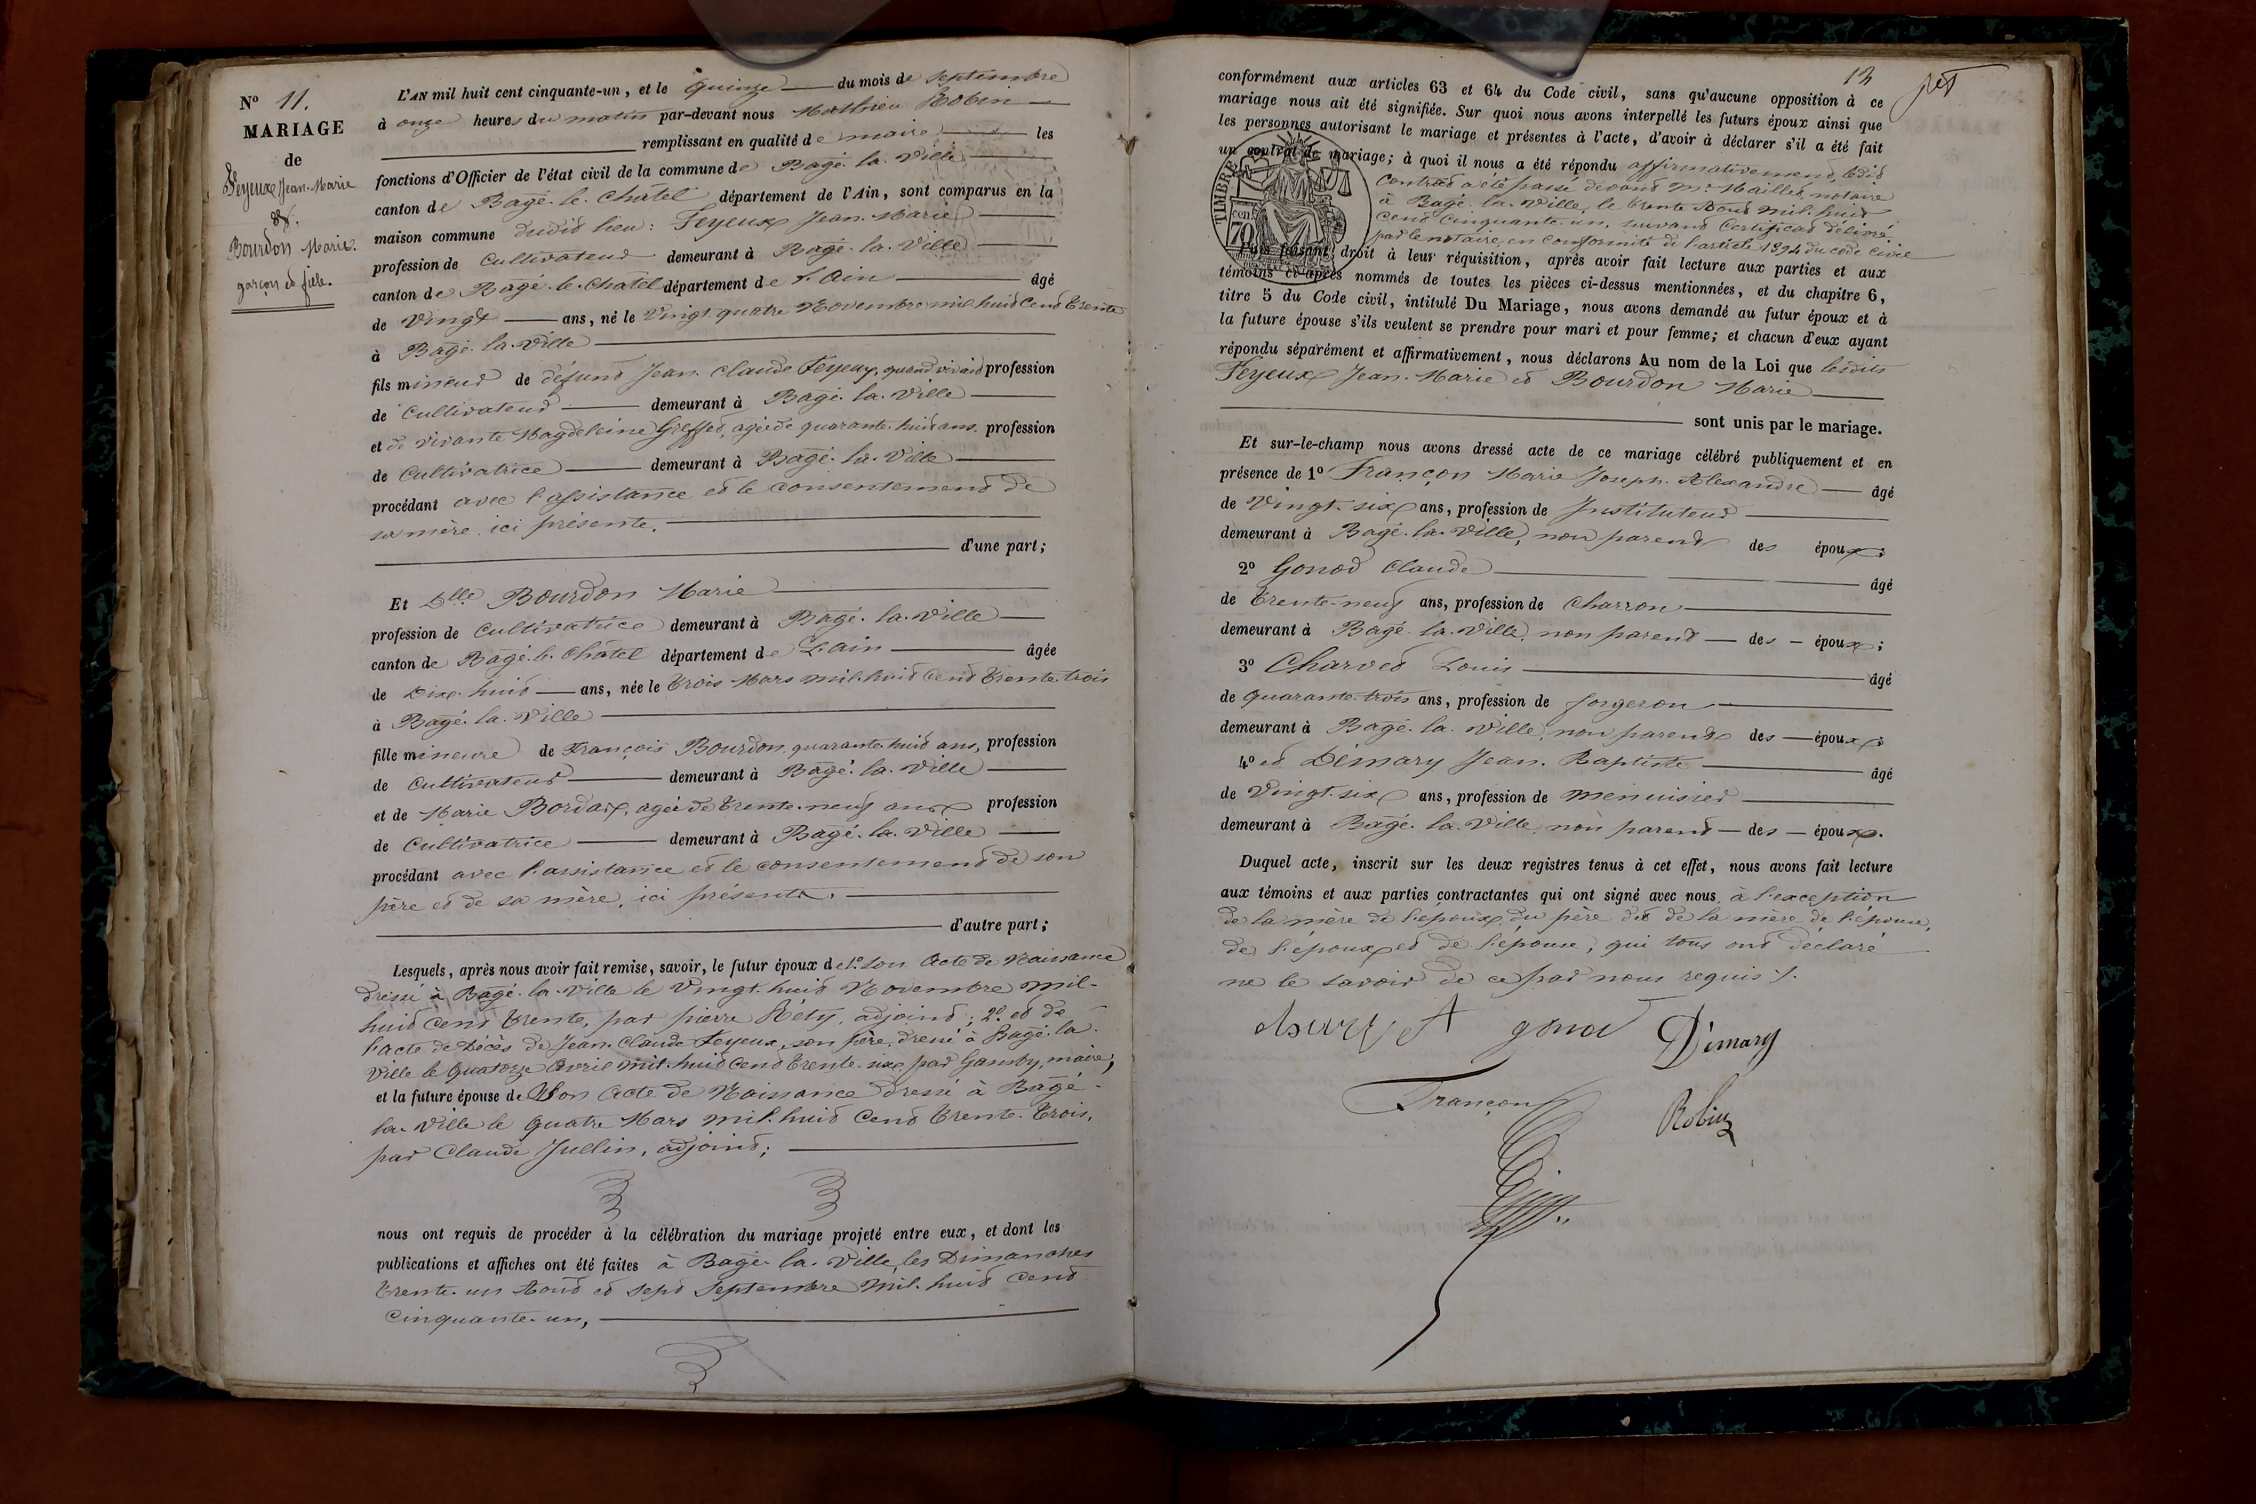 N° 11.
MARIAGE
de
Feyeux Jean-Marie
&.
Bourdon Marie.
garçon et fille.
L'AN mil huit cent cinquante-un, et le quinze du mois de Septembre
à onze heures du matin par-devant nous Mathieu Robin
remplissant en qualité de maire les
fonctions d'Officier de l'état civil de la commune de Bagé-la-Ville
canton de Bagé-le-Châtel département de l'Ain, sont comparus en la
maison commune dudit lieu: Feyeux Jean-Marie
profession de Cultivateur demeurant à Bagé-la-Ville
canton de Bagé-le-Chatel département de l'Ain âgé
de Vingt ans, né le Vingt quatre Novembre mil huit Cent Trente
à Bagé-la-Ville
fils mineur de défunt Jean-Claude Feyeux, quand vivait profession
de Cultivateur demeurant à Bagé-la-Ville
et de vivante Magdeleine Greffet, agée de quarante-huit ans, profession
de Cultivatrice demeurant à Bagé-la-Ville
procédant avec l'assistance et le consentement de
sa mère, ici présente.
d'une part;
Et Dlle Bourdon Marie
profession de Cultivatrice demeurant à Bagé-la-Ville
canton de Bagé-le-Châtel département de L'ain âgée
de Dix-huit ans, née le Trois Mars mil-huit Cent Trente-trois
à Bagé-la-Ville
fille mineure de François Bourdon, quarante-huit ans, profession
de Cultivateur demeurant à Bagé-la-Ville
et de Marie Bordaix, agée de Trente-neuf ans profession
de Cultivatrice demeurant à Bagé-la-Ville
procédant avec l'assistance et le consentement de son
père et de sa mère, ici présents.
d'autre part;
Lesquels, après nous avoir fait remise, savoir, le futur époux de 1° Son Acte de Naissance
dressé à Bagé-la-Ville le Vingt-huit Novembre mil-
huit Cent Trente, par pierre Réty, adjoint; 2° et de
l'acte de Décès de Jean-Claude Feyeux, son père, dressé à Bagé-la-
Ville le Quatorze Avril mil-huit Cent Trente-six par Gamby, maire,
et la future épouse de Son Acte de Naissance dressé à Bagé-
la-Ville le Quatre Mars mil-huit Cent Trente-Trois,
par Claude Jullin, adjoint;
nous ont requis de procéder à la célébration du mariage projeté entre eux, et dont les
publications et affiches ont été faites à Bagé-la-Ville, les Dimanches
Trente-un Août et Sept Septembre Mil-huit Cent
Cinquante-un,
13
conformément aux articles 63 et 64 du Code civil, sans qu'aucune opposition à ce
mariage nous ait été signifiée. Sur quoi nous avons interpellé les futurs époux ainsi que
les personnes autorisant le mariage et présentes à l'acte, d'avoir à déclarer s'il a été fait
un contrat de mariage; à quoi il nous a été répondu affirmativement, ledit
Contrat a été passé devant Me Maillet notaire
à Bagé-la-Ville, le Trente Août Mil-huit
Cent Cinquante-un, suivant Certificat délivré
par le notaire, en conformité de l'article 1394 du code civil
TIMBRE
cen
70
Puis faisant droit à leur réquisition, après avoir fait lecture aux parties et aux
témoins ci-après nommés de toutes les pièces ci-dessus mentionnées, et du chapitre 6,
titre 5 du Code civil, intitulé Du Mariage, nous avons demandé au futur époux et à
la future épouse s'ils veulent se prendre pour mari et pour femme; et chacun d'eux ayant
répondu séparément et affirmativement, nous déclarons Au nom de la Loi que lesdits
Feyeux Jean-Marie et Bourdon Marie
sont unis par le mariage.
Et sur-le-champ nous avons dressé acte de ce mariage célébré publiquement et en
présence de 1° Françon Marie Joseph-Alexandre âgé
de Vingt-six ans, profession de Instituteur
demeurant à Bagé-la-Ville, non parent des époux;
2° Gonod Claude âgé
de Trente-neuf ans, profession de Charron
demeurant à Bagé-la-Ville, non parent des époux;
3° Charvet Louis âgé
de Quarante-trois ans, profession de forgeron
demeurant à Bagé-la-Ville, non parent des époux;
4° et Démary Jean-Baptiste âgé
de Vingt-six ans, profession de menuisier
demeurant à Bagé-la-Ville, non parent des époux.
Duquel acte, inscrit sur les deux registres tenus à cet effet, nous avons fait lecture
aux témoins et aux parties contractantes qui ont signé avec nous, à l'exception
de la mère de l'époux, du père et de la mère de l'épouse,
de l'époux et de l'épouse, qui tous ont déclaré
ne le savoir de ce par nous requis ./.
charvet gonod Démary
Françon Robin